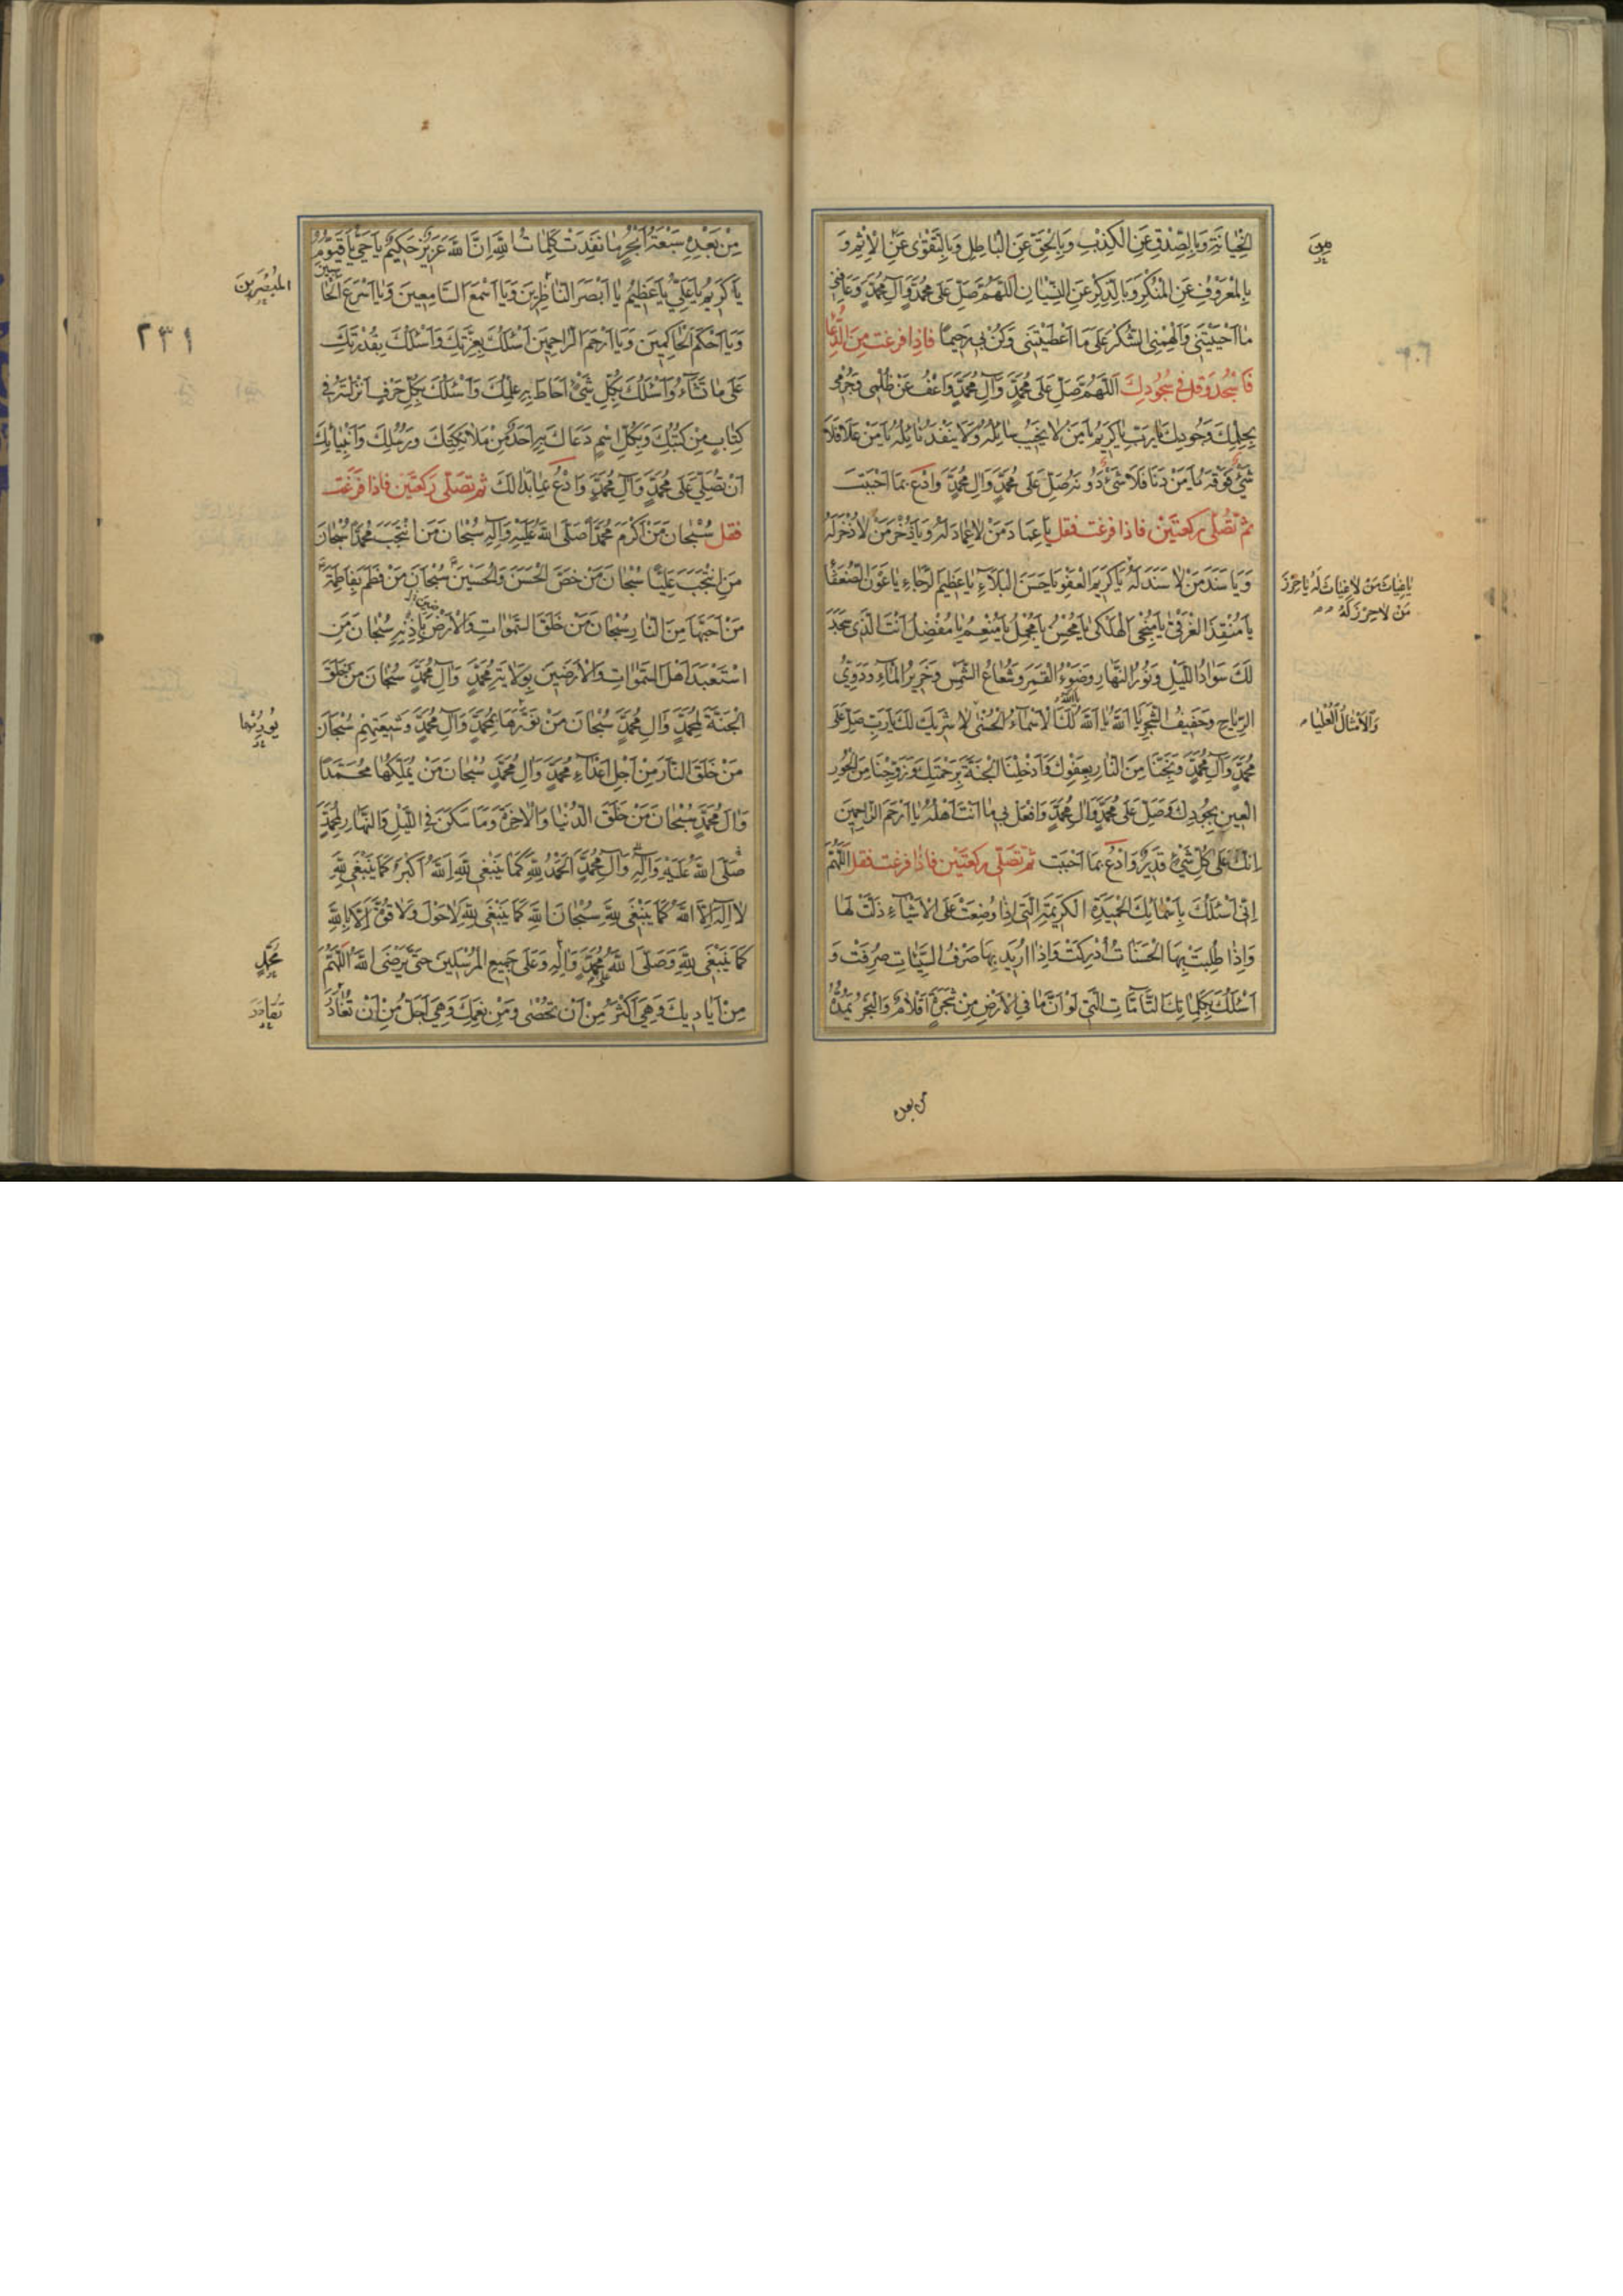 الخِيانَةِ وَبِالصِّدْقِ عَنِ الكَذِبِ وَبِالحَقِّ عَنِ الباطِلِ وَبِالتَّقْوٰى عَنِ الاِثْمِ وَ
مِنَ
بِالمَعْرُوفِ عَنِ المُنْكَرِ وَبِالذِّكْرِ عَنِ النِّسْيانِ اَللّهُمَّ صَلِّ عَلى مُحَمَّدٍ وَآلِ مُحَمَّدٍ وَعافِنِى
ما اَحْيَيْتَنى وَاَلْهِمْنِى الشُّكْرَ عَلى ما اَعْطَيْتَنى وَكُنْ بى رَحِيمًا فاذا فرغت مِنَ الدُّعا
فَاسْجُد وَقل فى سُجُودِكَ اَللّهُمَّ صَلِّ عَلى مُحَمَّدٍ وَآلِ مُحَمَّدٍ وَاعْفُ عَنْ ظُلْمى وَجُرْمى
بِحِلْمِكَ وَجُودِكَ يارَبِّ ياكَرِيمُ يامَنْ لا يَخيبُ سائِلُهُ وَلا يَنْفَدُ نائِلُهُ يامَنْ عَلا فَلا
شَىْءَ فَوْقَهُ يامَنْ دَنا فَلا شَىْءَ دُونَهُ صَلِّ عَلى مُحَمَّدٍ وَآلِ مُحَمَّدٍ وَادْعُ بمَا اَحْبَبْتَ
ثم تُصَلّى ركعتَيْنِ فاذا فرغت فقل ياعِمادَ مَنْ لا عِمادَ لَهُ وَياذُخْرَ مَنْ لا ذُخْرَ لَهُ
وَياسَنَدَ مَنْ لا سَنَدَ لَهُ ياكَرِيمَ العَفْوِ ياحَسَنَ البَلاءِ ياعَظِيمَ الرَّجاءِ ياعَوْنَ الضُّعَفا
ياغِياثَ مَنْ لاغِياثَ لَهُ ياحِرْزَ
مَنْ لاحِرْزَ لَهُ
يامُنْقِذَ الغَرْقى يامُنْجِىَ الهَلْكى يامُحْسِنُ يامُجْمِلُ يامُنْعِمُ يامُفْضِلُ اَنْتَ الَّذى سَجَدَ
لَكَ سَوادُ اللَّيْلِ وَنُورُ النَّهارِ وَضَوْءُ القَمَرِ وَشُعاعُ الشَّمْسِ وَخَرِيرُ الماءِ وَدَوِىُّ
الرِّياحِ وَحَفِيفُ الشَّجَرِ يا اَللهُ يا اَللهُ لَكَ الاَسْماءُ الحُسْنى لا شَرِيكَ لَكَ يارَبِّ صَلِّ عَلى
يااَللهُ
وَالاَمْثالُ العُلْياء
مُحَمَّدٍ وَآلِ مُحَمَّدٍ وَنَجِّنا مِنَ النّارِ بِعَفْوِكَ وَاَدْخِلْنَا الجَنَّةَ بِرَحْمَتِكَ وَزَوِّجْنا مِنَ الحُورِ
العِينِ بِجُودِكَ وَصَلِّ عَلى مُحَمَّدٍ وَآلِ مُحَمَّدٍ وَافْعَلْ بى ما اَنْتَ اَهْلُهُ يا اَرْحَمَ الرّاحِمِينَ
اِنَّكَ عَلى كُلِّ شَىْءٍ قَدِيرٌ وَادْعُ بمَا اَحْبَبْتَ ثم تصَلّى ركعتَيْن فاذا فرغت فقل اَللّهُمَّ
اِنّى اَسْئَلُكَ بِاَسْمائِكَ الحَمِيدَةِ الكَرِيمَةِ الَّتى اِذا وُضِعَتْ عَلَى الاَشْياءِ ذَلَّتْ لَها
وَاِذا طُلِبَتْ بِهَا الحَسَناتُ اُدْرِكَتْ وَاِذا اُرِيدَ بِها صَرْفُ السَّيِّئاتِ صُرِفَتْ وَ
اَسْئَلُكَ بِكَلِماتِكَ التّامّاتِ الَّتى لَوْ اَنَّ ما فِى الاَرْضِ مِنْ شَجَرَةٍ اَقْلامٌ وَالبَحْرُ يَمُدُّهُ
من بعده
مِنْ بَعْدِهِ سَبْعَةُ اَبْحُرٍ ما نَفِدَتْ كَلِماتُ اللهِ اِنَّ اللهَ عَزِيزٌ حَكِيمٌ ياحَىُّ ياقَيُّومُ
ياكَرِيمُ ياعَلِىُّ ياعَظِيمُ يا اَبْصَرَ النّاظِرِينَ وَيا اَسْمَعَ السّامِعِينَ وَيا اَسْرَعَ الحاسِبينَ
المُبْصِرِينَ
وَيا اَحْكَمَ الحاكِمِينَ وَيا اَرْحَمَ الرّاحِمِينَ اَسْئَلُكَ بِعِزَّتِكَ وَاَسْئَلُكَ بِقُدْرَتِكَ
٢٣١
عَلى ما تَشاءُ وَاَسْئَلُكَ بِكُلِّ شَىْءٍ اَحاطَ بِهِ عِلْمُكَ وَاَسْئَلُكَ بِكُلِّ حَرْفٍ اَنْزَلْتَهُ فى
كِتابٍ مِنْ كُتُبِكَ وَبِكُلِّ اسْمٍ دَعاكَ بِهِ اَحَدٌ مِنْ مَلائِكَتِكَ وَرُسُلِكَ وَاَنْبِيائِكَ
اَنْ تُصَلِّىَ عَلى مُحَمَّدٍ وَآلِ مُحَمَّدٍ وَادْعُ بمَا بَدا لَكَ ثم تصَلّى رَكعتَيْن فاذا فرَغْت
فقل سُبْحانَ مَنْ اَكْرَمَ مُحَمَّدًا صَلَّى اللهُ عَلَيْهِ وَآلِهِ سُبْحانَ مَنِ انْتَجَبَ مُحَمَّدًا سُبْحانَ
مَنِ انْتَجَبَ عَلِيًّا سُبْحانَ مَنْ خَصَّ الحَسَنَ وَالحُسَيْنَ سُبْحانَ مَنْ فَطَمَ بِفاطِمَةَ
مَنْ اَحَبَّها مِنَ النّارِ سُبْحانَ مَنْ خَلَقَ السَّمواتِ وَالاَرْضَ بِاِذْنِهِ سُبْحانَ مَنِ
اسْتَعْبَدَ اَهْلَ السَّمواتِ وَالاَرَضِينَ بِوِلايَةِ مُحَمَّدٍ وَآلِ مُحَمَّدٍ سُبْحانَ مَنْ خَلَقَ
الجَنَّةَ لِمُحَمَّدٍ وَآلِ مُحَمَّدٍ سُبْحانَ مَنْ نَوَّرَها بِمُحَمَّدٍ وَآلِ مُحَمَّدٍ وَشِيعَتِهِمْ سُبْحانَ
يُورِثُها
مَنْ خَلَقَ النّارَ مِنْ اَجْلِ اَعْداءِ مُحَمَّدٍ وَآلِ مُحَمَّدٍ سُبْحانَ مَنْ يُمَلِّكُها مُحَمَّدًا
وَآلَ مُحَمَّدٍ سُبْحانَ مَنْ خَلَقَ الدُّنْيا وَالاخِرَةَ وَما سَكَنَ فِى اللَّيْلِ وَالنَّهارِ لِمُحَمَّدٍ
صَلَّى اللهُ عَلَيْهِ وَآلِهِ وَآلِ مُحَمَّدٍ اَلحَمْدُ لِلّهِ كَما يَنْبَغى لِلّهِ اَللهُ اَكْبَرُ كَما يَنْبَغى لِلّهِ
لا اِلهَ اِلَّا اللهُ كَما يَنْبَغى لِلّهِ سُبْحانَ اللهِ كَما يَنْبَغى لِلّهِ لا حَوْلَ وَلا قُوَّةَ اِلّا بِاللهِ
كَما يَنْبَغى لِلّهِ وَصَلَّى اللهُ عَلى مُحَمَّدٍ وَآلِهِ وَعَلى جَمِيعِ المُرْسَلِينَ حَتّى يَرْضَى اللهُ اَللّهُمَّ
مُحَمَّدٍ
مِنْ اَيادِيكَ وَهِىَ اَكْثَرُ مِنْ اَنْ تُحْصى وَمِنْ نِعَمِكَ وَهِىَ اَجَلُّ مِنْ اَنْ تُغادَرَ